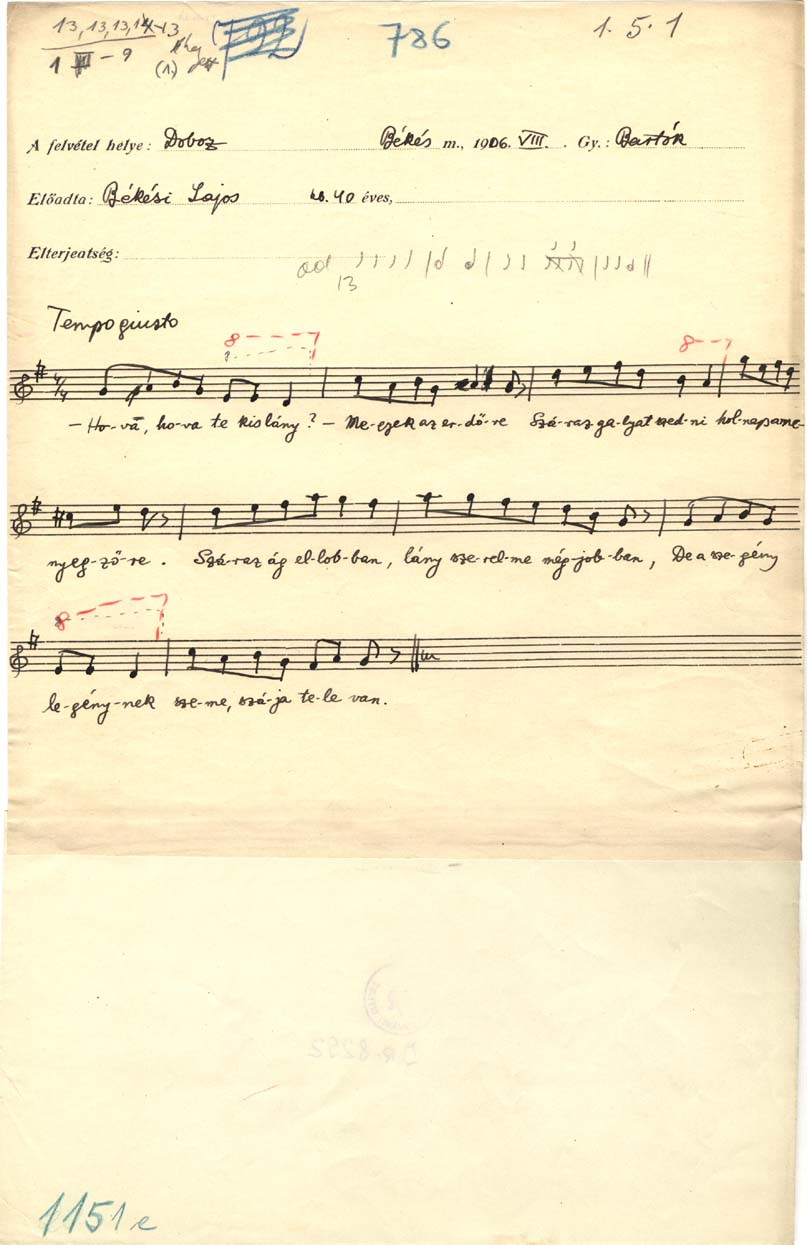 13, 13, 13, 14-13 786 1. 5. 1
1 VII - 9 (1.)
A felvétel helye: Doboz Békés m., 1906. VIII. Gy.: Bartók
Előadta: Békési Lajos kb. 40 éves,
Elterjedtség:
13
Tempo giusto
8 8
- Ho-vā, ho-va te kislány? - Me-gyek az er-dő-re Szá-raz ga-lyat szed-ni hol-nap a me-
nyeg-ző-re. Szá-raz ág el-lob-ban, lány sze-rel-me még-job-ban, De a sze-gény
8
le-gény-nek sze-me, szá-ja te-le van.
1151e